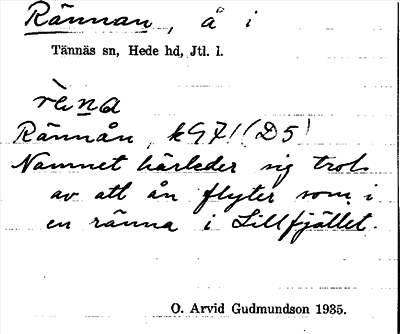 Rännan, å i
Tännäs sn, Hede hd, Jtl. l.
rèna
Rännån, k 971 (D5)
Namnet härleder sig trol.
av att ån flyter som i
en ränna i Lillfjället.
O. Arvid Gudmundson 1935.